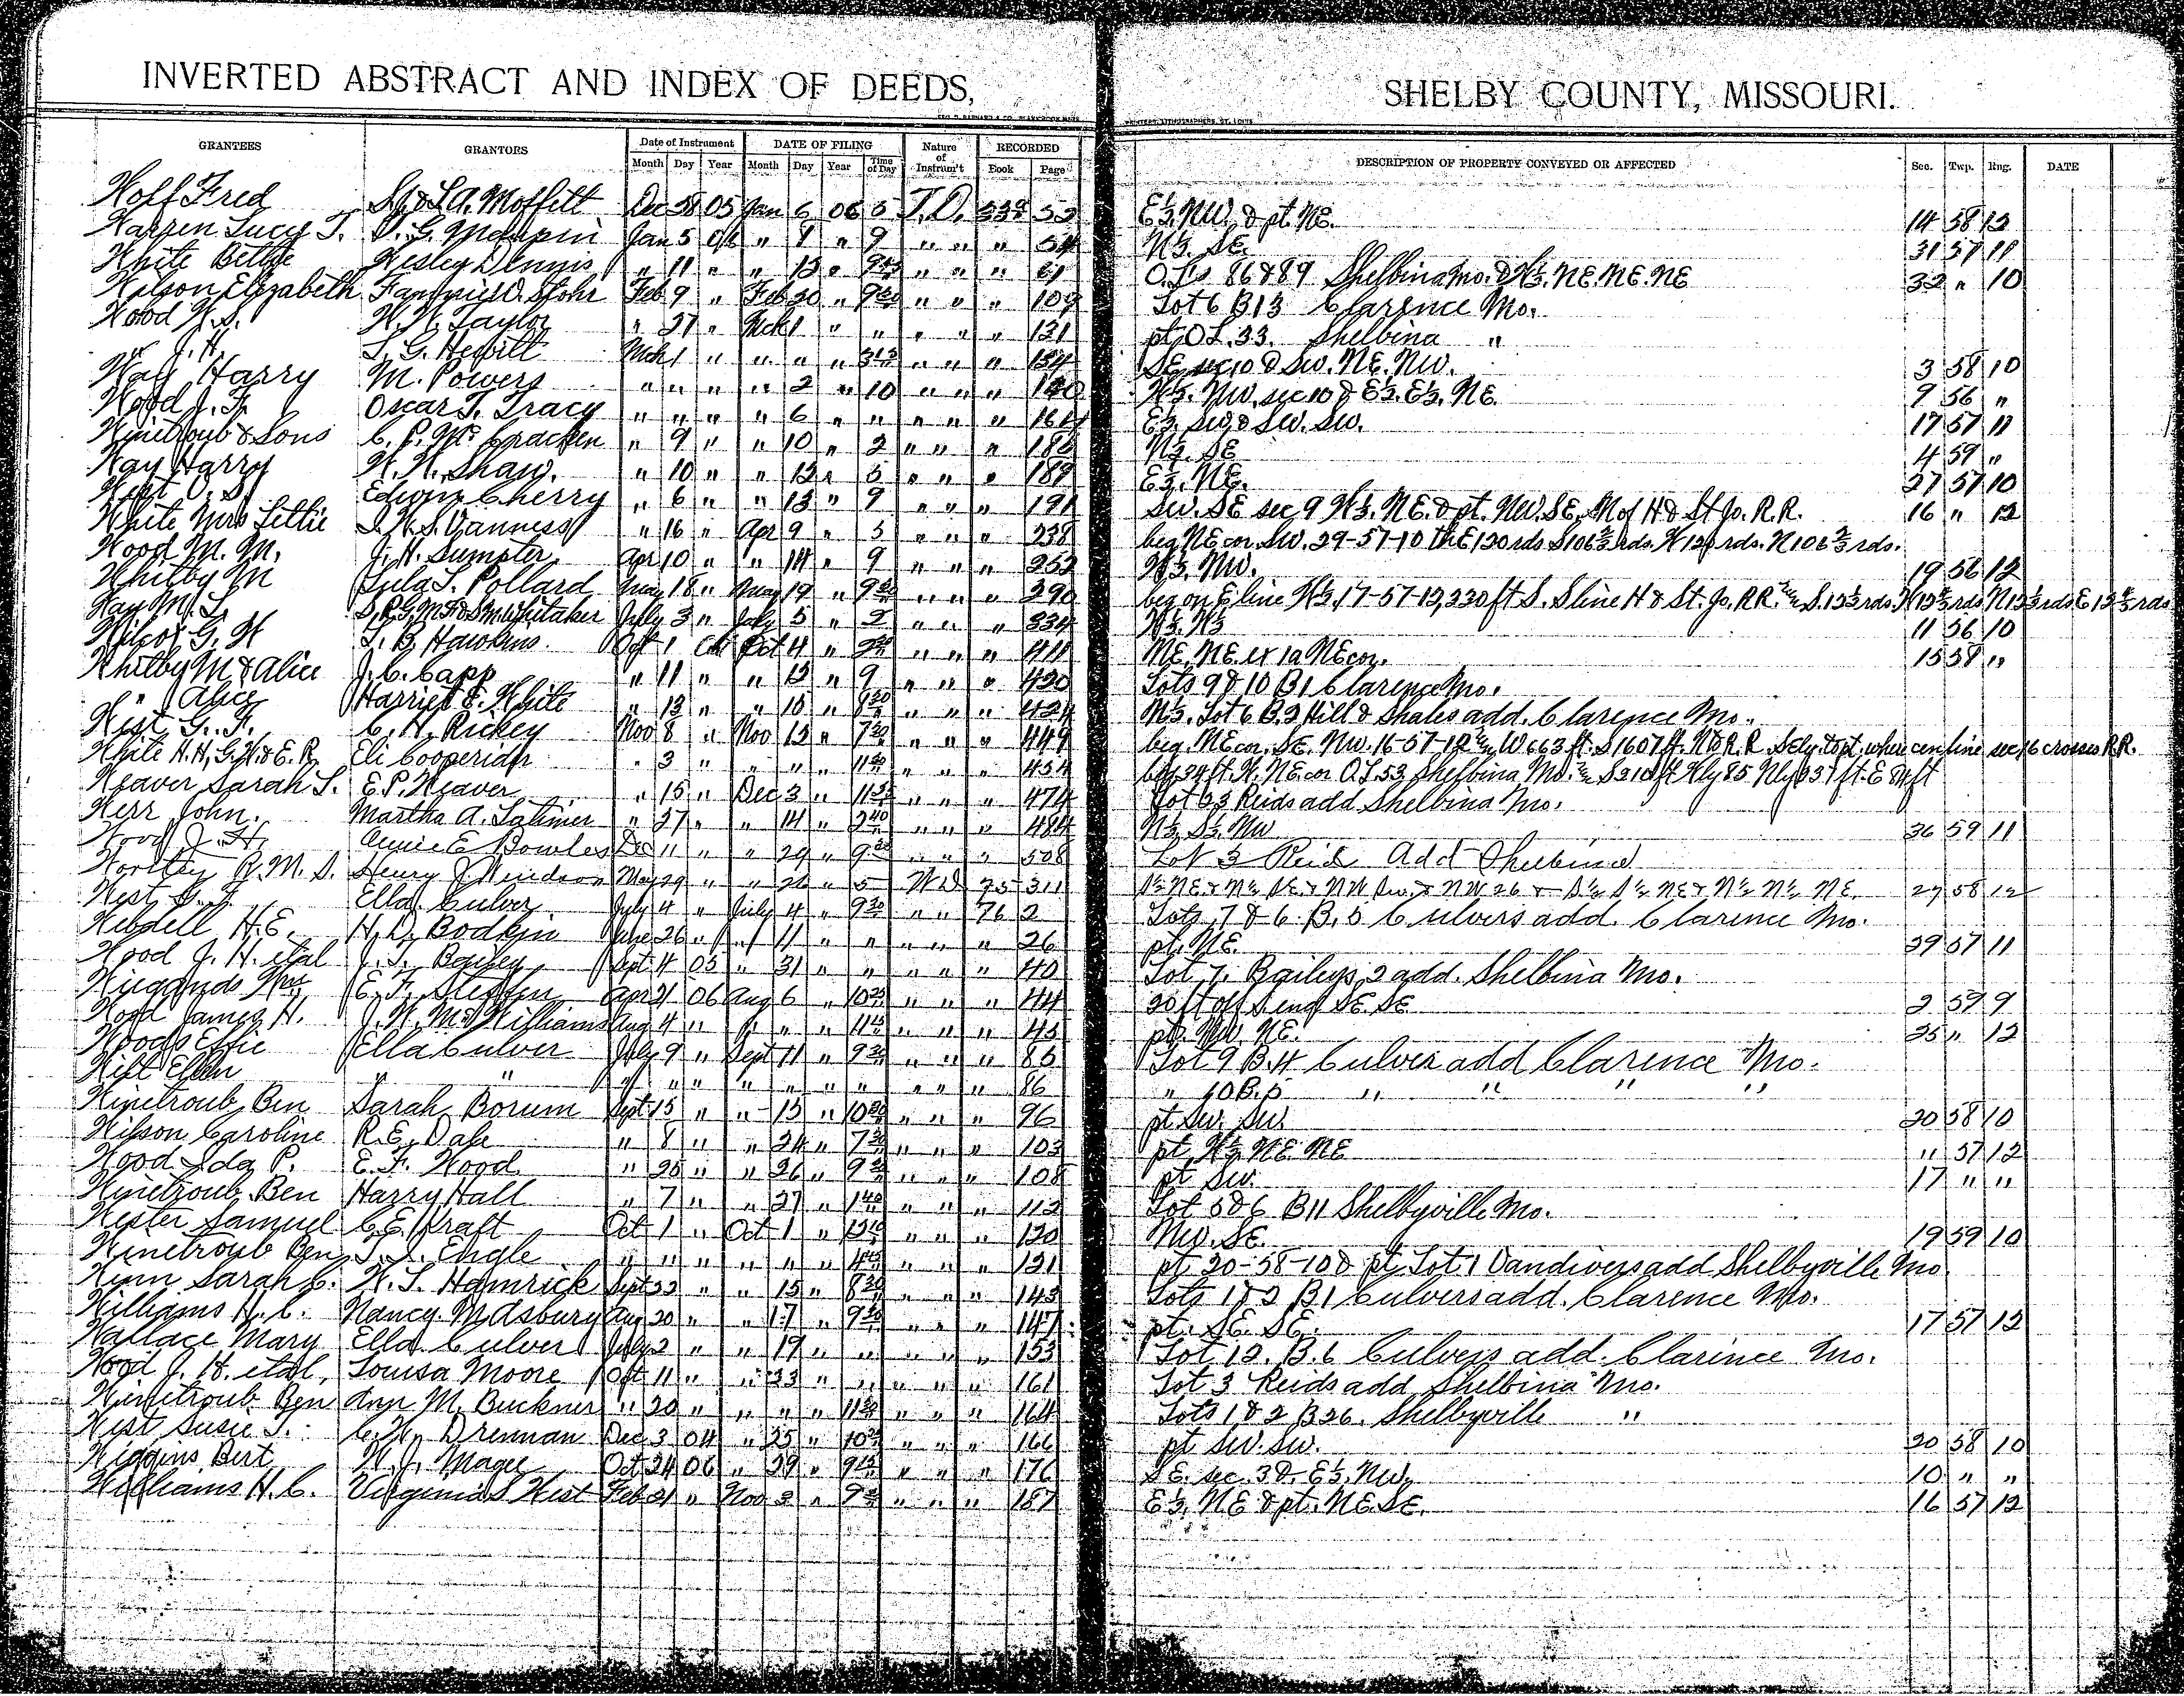 INVERTED ABSTRACT AND INDEX OF DEEDS, SHELBY COUNTY, MISSOURI.
GRANTEES GRANTORS Date of Instrument DATE OF FILING Nature of Instrum't RECORDED DESCRIPTION OF PROPERTY CONVEYED OR AFFECTED Sec. Twp. Rng. DATE
Month Day Year Month Day Year Time of Day Book Page
Wolf Fred Moffett Dec 28 05 Jan 6 06 5 T.D. 53 E½. NW. & pt. NE. 14 58 12
Warren Lucy T. Maupin Jan 5 06 " 8 " 9 " " " 54 N½. SE. 31 57 11
White Bettie Wesley Dennis " 11 " " 13 " " " " 61 O.Ls 86 & 89 Shelbina Mo. & W½. NE. NE. NE 32 " 10
Wilson Elizabeth Fannie D. Stohr Feb 9 " Feb 20 " 9 30 " " " 109 Lot 6 B 13 Clarence Mo.
Wood W.S. Taylor " 27 " Mch 1 " " " " " 131 pt O.L. 33. Shelbina "
" J.H. L. G. Hewitt Mch 1 " " " " " " " 134 SE sec 10 & SW. NE. NW. 3 58 10
Way Harry M. Powers " " " " 2 " 10 " " " 140 W½. NW. sec 10 & E½. E½. NE. 9 56 "
Wood J. F. Oscar T. Tracy " " " " 6 " " " " " E½. SW & SW. SW. 17 57 11
Winetroub & Sons C. P. McCracken " 9 " " 10 " 2 " " " N½. SE 4 59 "
Way Harry W. W. Shaw. " 10 " " 12 " 5 " " " 189 E½. NE. 27 57 10
West Edwin Cherry " 6 " " 13 " 9 " " " 191 SW. SE sec 9 W½. NE. & pt. NW. SE. N of H & St Jo. R.R. 16 " 12
White Mrs Lettie Vanness " 16 " Apr 9 " 5 " " " 238 beg NE cor. SW. 29-57-10 th E 120 rds S 106⅔ rds. W 120 rds. N 106⅔ rds.
Wood M. M. J. H. Sumpter Apr 10 " " 14 " 9 " " " 252 W½. NW. 19 56 12
Whitby M Lula L. Pollard May 18 " May 19 " 9 30 " " " 290 beg on E line W½. 17-57-12, 330 ft S. S line H & St. Jo. R.R.
Way M. L. Whitaker July 3 " July 5 " 2 " " " 334 W½. W½ 11 56 10
Wilcox G. W Hawkins. Oct 1 Oct 4 " " " " 411 NE. NE. ex 1a NE cor. 15 58 "
Whitby M & Alice J. C. Capp " 11 " " 12 " 9 " " " 420 Lots 9 & 10 B1 Clarence Mo.
" Alice Harriet E. White " 13 " " 16 " 8 30 " " " 424 N½. Lot 6 B. 2 Hill & Shales add. Clarence Mo.
West G. F. C. H. Rickey Nov 8 " Nov 12 " 7 30 " " " 449 beg. NE cor. SE. NW. 16-57-12 W 663 ft. S 1607 ft. N & R.R. Sely to pt. where cen line sec 16 crosses R.R.
White H.H, G.W. & E.R. Eli Cooperider " 3 " " " " 11 30 " " " 454 beg 34 ft. W. NE cor O.L. 53 Shelbina Mo. S 210 ft
Weaver Sarah L. E.P. Weaver " 15 " Dec 3 " " " " 474 Lot 63 Reids add Shelbina Mo.
Werr John. Martha A. Latimer " 27 " " 14 " 2 40 " " " 484 N½. S½. NW 36 59 11
Wood J. H. Annie E Bowles Dec 11 " " 29 " 9 30 " " " 508 Lot 3 Reid Add Shelbina
Worthy R. M. S. Henry J. May 29 " " 26 " 5 WD 75 311 27 58 12
West G. F. Ella Culver July 4 " July 4 " 9 30 " " 76 2 Lots 7 & 6 B. 5 Culvers add. Clarence Mo.
Weddell H.E. H. D. Bodkin June 26 " " 11 " " " " " 26 pt. NE. 29 57 11
Wood J. H. et al J. L. Bailey Sept 4 05 " 31 " " " " " 40 Lot 7. Baileys 2 add. Shelbina Mo.
Wiegands Wm E. F. Apr 21 06 Aug 6 " " " " 44 20 ft off S end SE. SE 2 59 9
Wood James H. J. W. McWilliams Aug 4 " " " " " " " 45 pt. NW. NE. 25 " 12
Woods Effie Ella Culver July 9 " Sept 11 " 9 30 " " " 85 Lot 9 B. 4 Culver add Clarence Mo.
West Ellen " " " " " " " " " " " " 86 " 10 B. 5 " " " "
Winetroub Ben Sarah Borum Sept 15 " " 15 " 10 30 " " " 96 pt SW. SW 20 58 10
Wilson Caroline R. E. Dale " 8 " " 24 " 7 30 " " " 103 pt W½. NE. NE " 57 12
Wood Ida P. E. F. Wood " 25 " " 26 " 9 30 " " " 108 pt SW. 17 " "
Winetroub Ben Harry Hall " 7 " " 27 " 1 40 " " " 112 Lot 5 & 6 B 11 Shelbyville Mo.
Wester Samuel C. E. Kraft Oct 1 " Oct 1 " " " " 120 NW. SE. 19 59 10
Winetroub Ben Engle " " " " " " " " " 121 pt 20-58-10 & pt Lot 1 Vandivers add Shelbyville Mo.
Winn Sarah C. W. L. Hamrick Sept 22 " " 15 " 8 30 " " " 143 Lots 1 & 2 B1 Culvers add. Clarence Mo.
Williams H. C. Nancy M Asbury Aug 20 " " 17 " 9 30 " " " 147 pt. SE. SE. 17 57 12
Wallace Mary Ella Culver July 2 " " 19 " " " " " 153 Lot 12. B. 6 Culvers add. Clarence Mo.
Wood J. H. et al, Louisa Moore Oct 11 " " 23 " " " " " 161 Lot 3 Reids add Shelbina Mo.
Winetroub Ben Ann M. Buckner " 20 " " " " 11 30 " " " 164 Lots 1 & 2 B 26. Shelbyville "
West Susie T. C. W. Drennan Dec 3 04 " 25 " " " " 166 pt SW. SW. 20 58 10
Wiggins Bert W. J. Magee Oct 24 06 " 29 " 9 15 " " " 176 SE. sec. 3 & E½. NW. 10 " "
Williams H. C. Virginia S West Feb 21 " Nov 2 " " " " 187 E½. NE & pt. NE. SE. 16 57 12